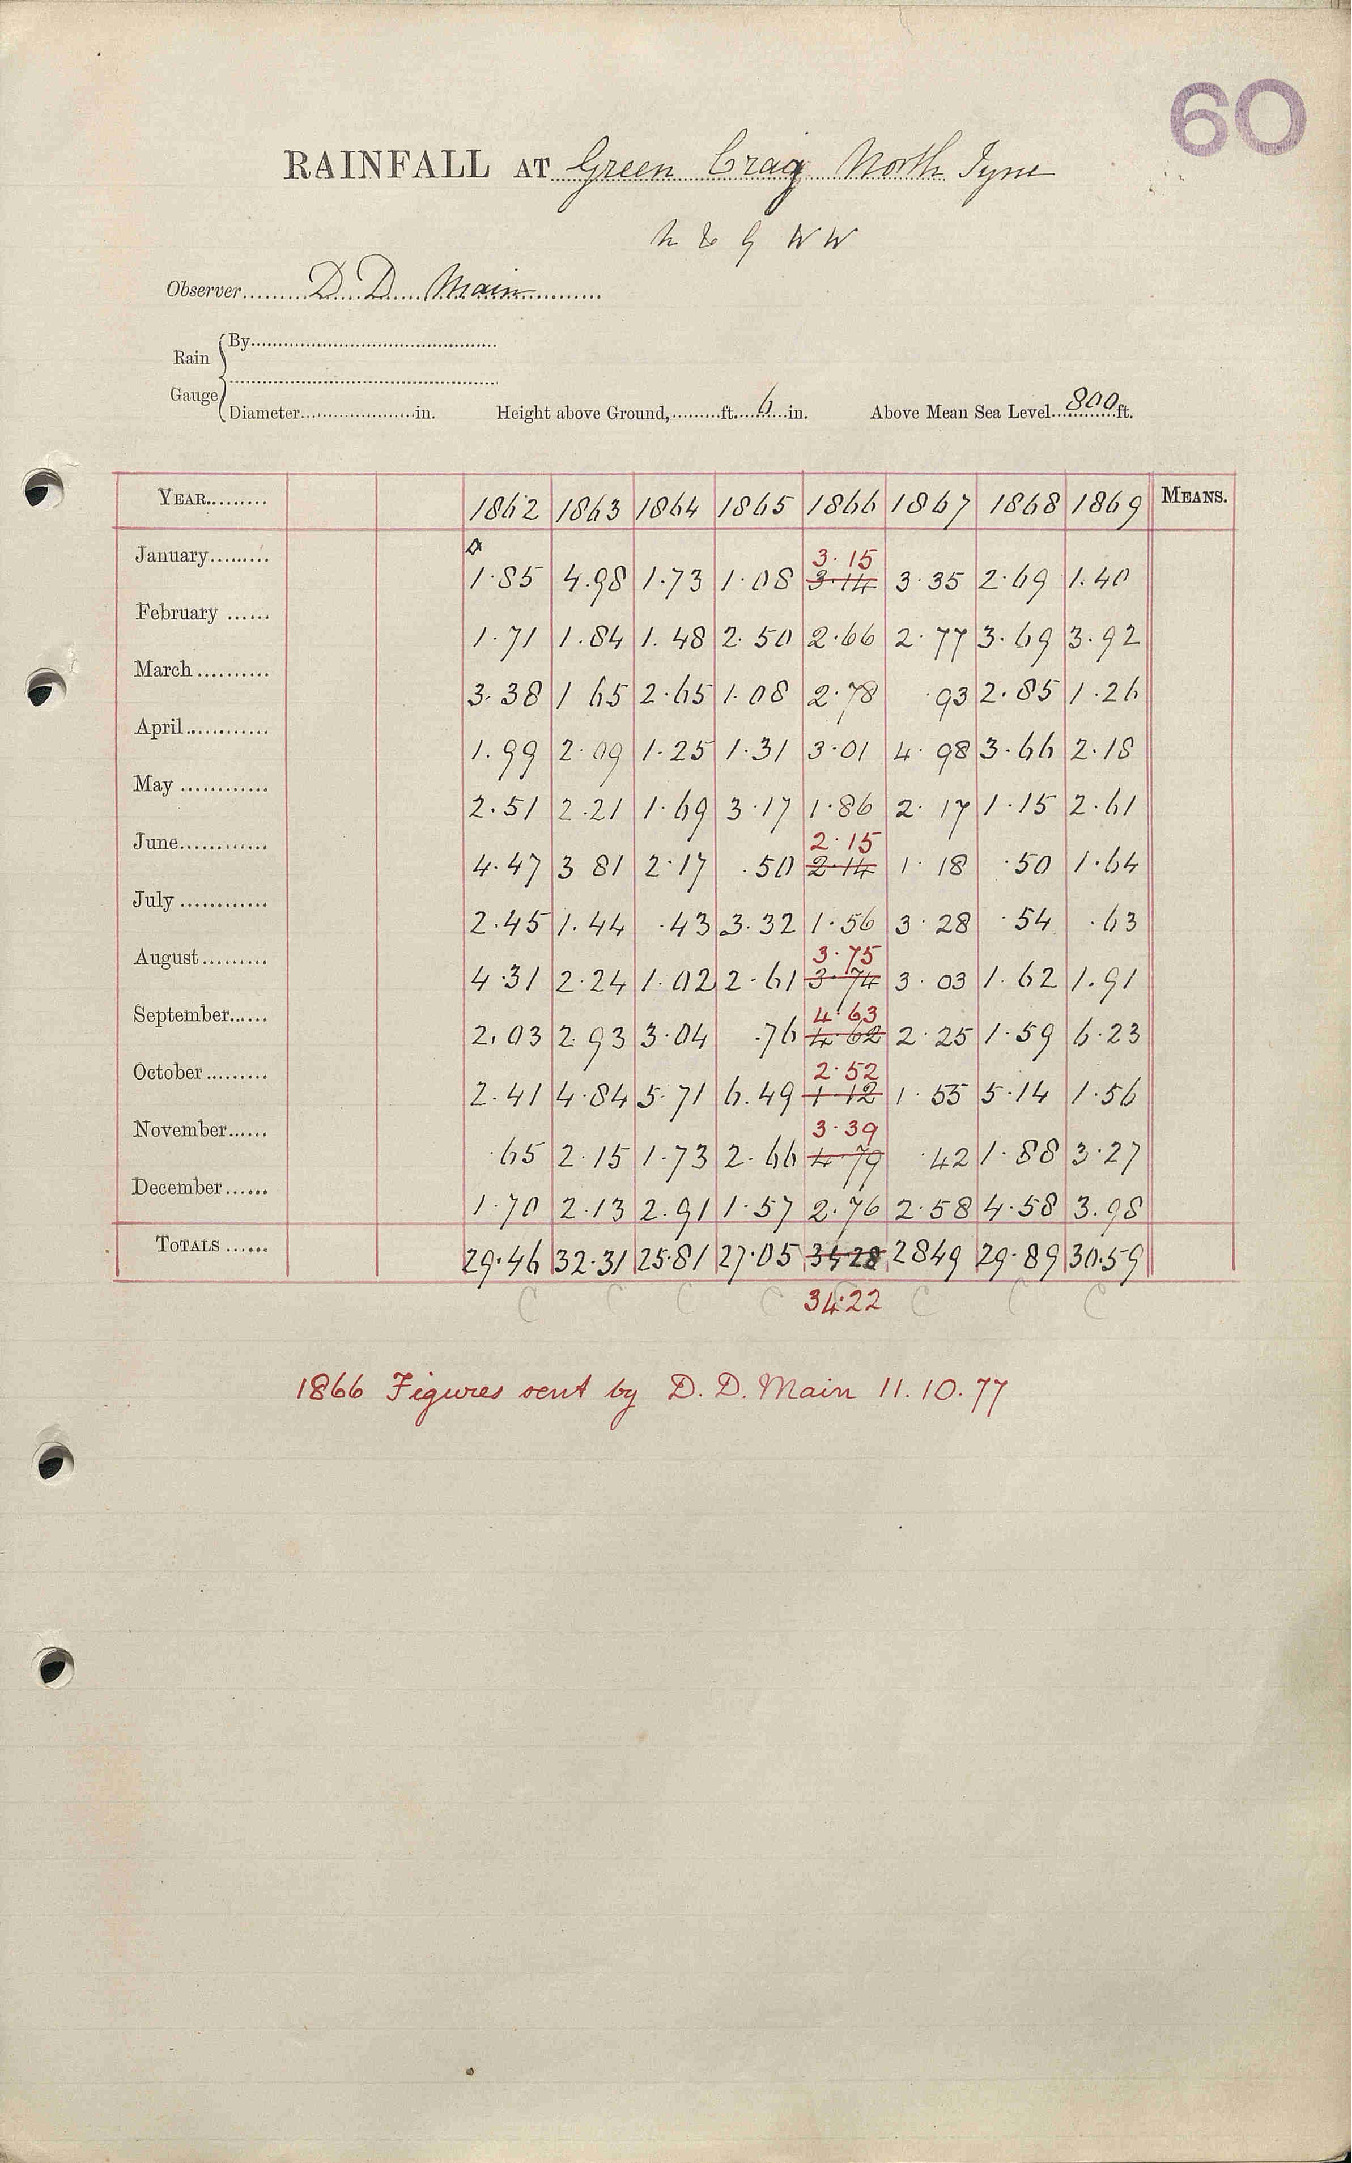 60
RAINFALL AT Green Crag North Tyne
N & G WW
Observer D. D. Main
Rain Gauge By
Diameter in. Height above Ground, ft. 6 in. Above Mean Sea Level 800 ft.
YEAR 1862 1863 1864 1865 1866 1867 1868 1869 MEANS.
3.15
January 1.85 4.98 1.73 1.08 3.14 3.35 2.69 1.40
February 1.71 1.84 1.48 2.50 2.66 2.77 3.69 3.92
March 3.38 1 65 2.65 1.08 2.78 .93 2.85 1.26
April 1.99 2.09 1.25 1.31 3.01 4.98 3.66 2.18
May 2.51 2.21 1.69 3.17 1.86 2.17 1.15 2.61
2.15
June 4.47 3 81 2.17 .50 2.14 1.18 .50 1.64
July 2.45 1.44 .43 3.32 1.56 3.28 .54 .63
3.75
August 4.31 2.24 1.02 2.61 3.74 3.03 1.62 1.91
4.63
September 2.03 2.93 3.04 .76 4.62 2.25 1.59 6.23
2.52
October 2.41 4.84 5.71 6.49 1.12 1.55 5.14 1.56
3.39
November .65 2.15 1.73 2.66 4.79 .42 1.88 3.27
December 1.70 2.13 2.91 1.57 2.76 2.58 4.58 3.98
TOTALS 29.46 32.31 25.81 27.05 34 28 2849 29.89 30.59
C C C C 34.22 C C C
1866 Figures sent by D. D. Main 11.10.77